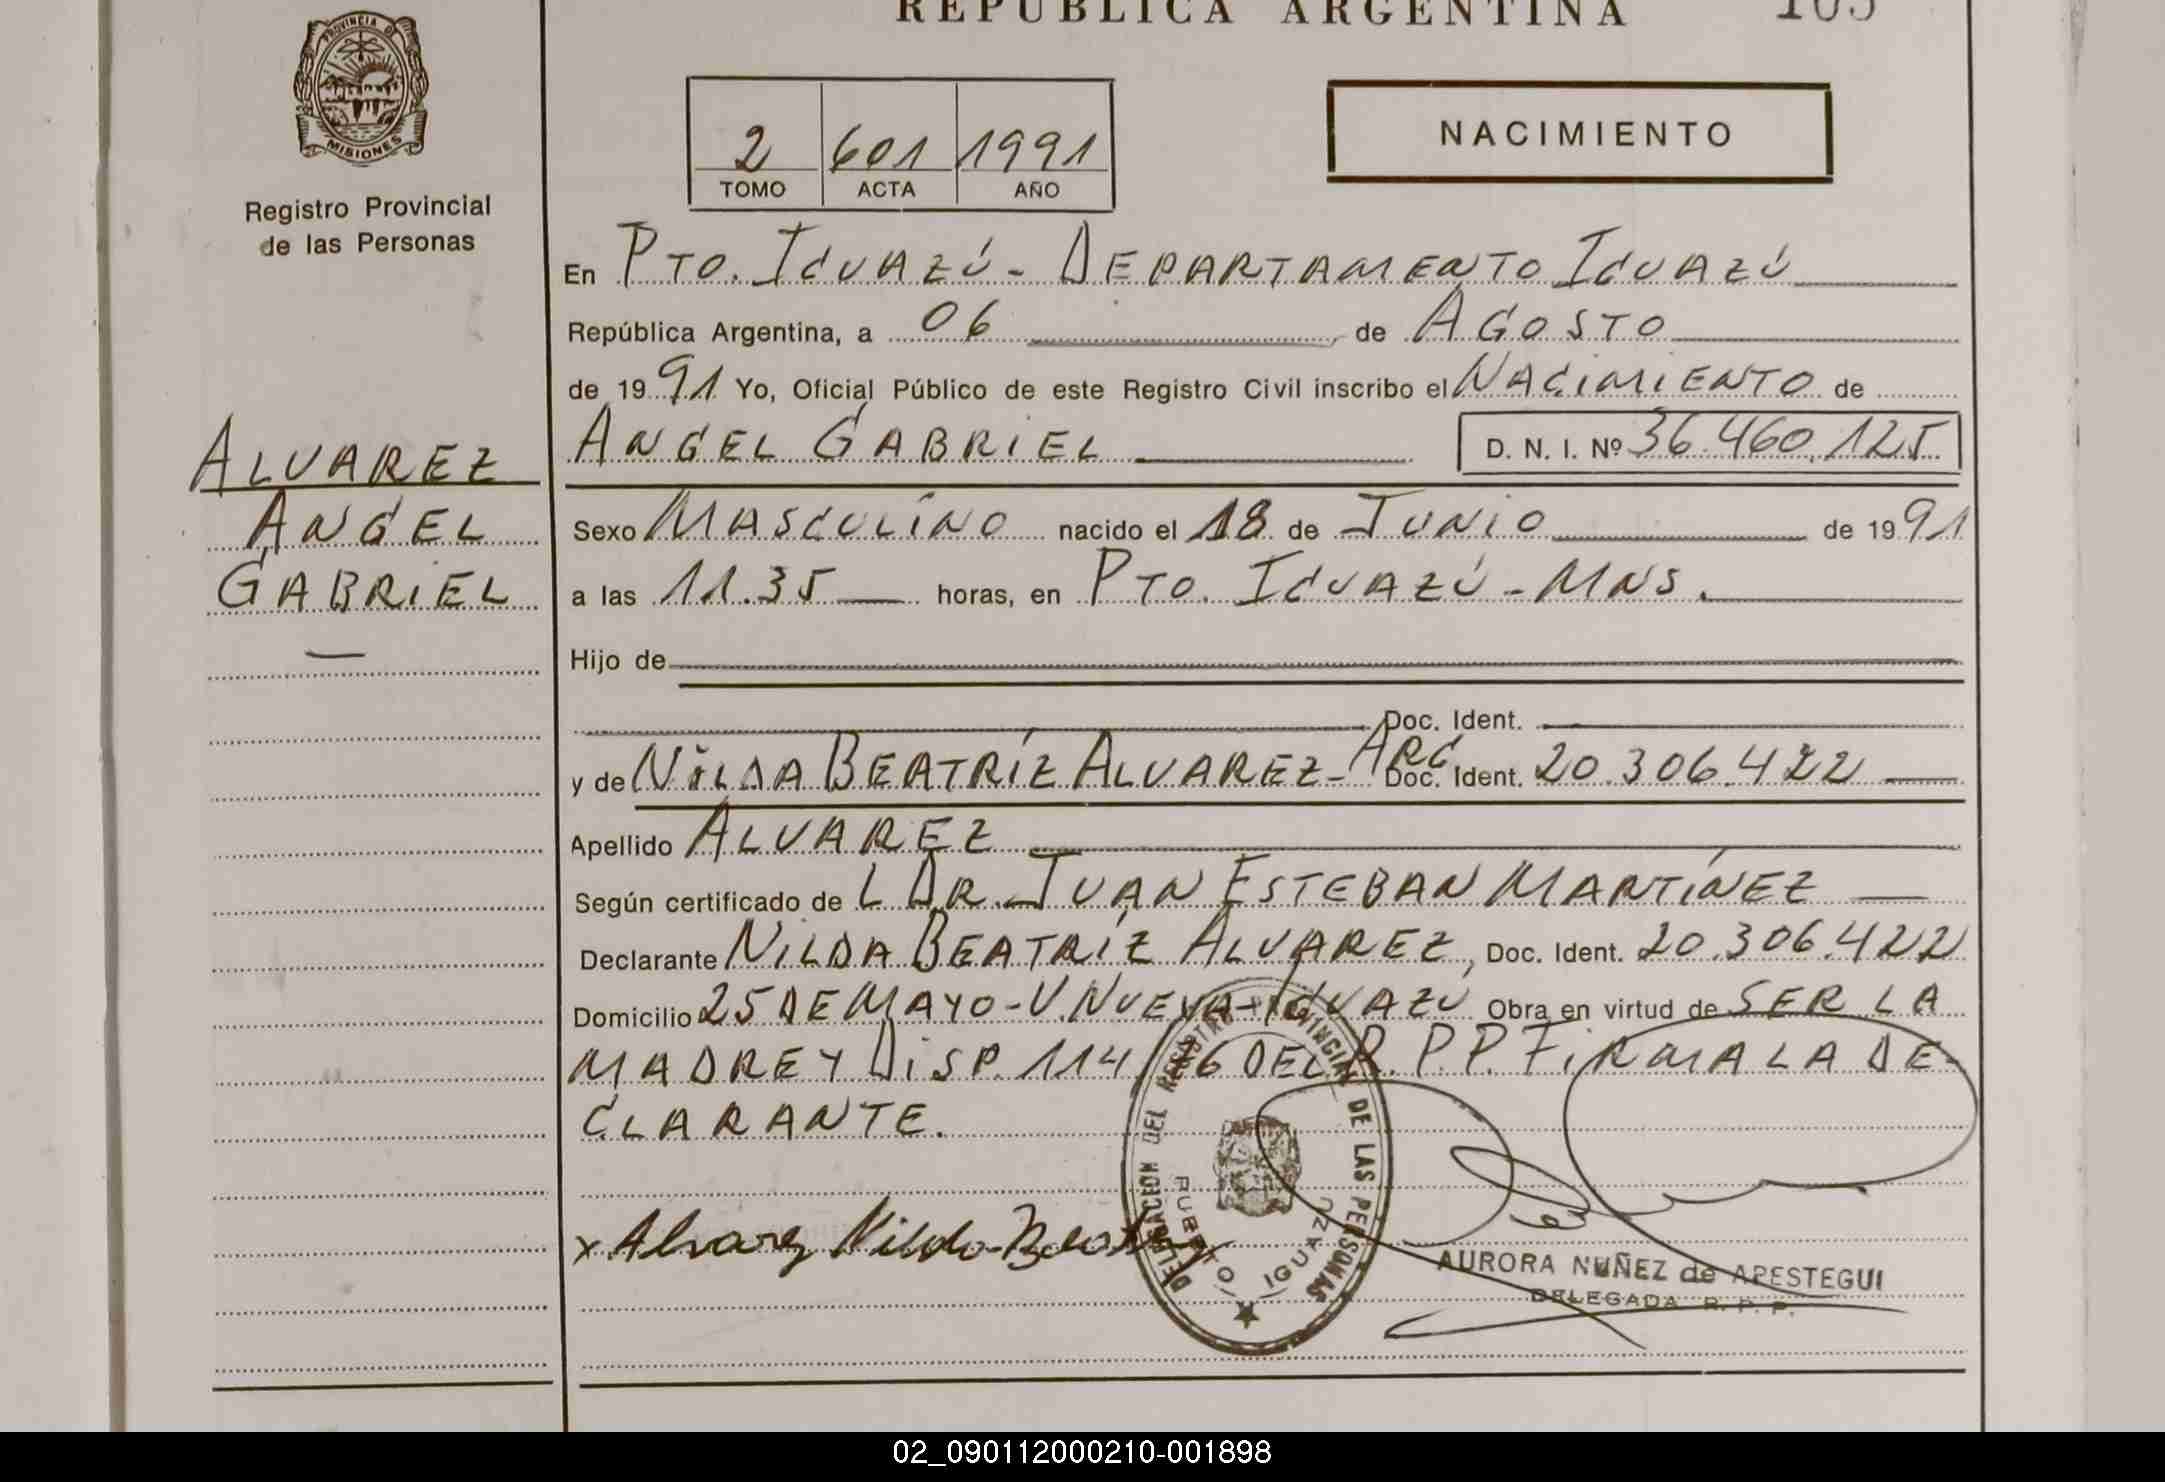 REPUBLICA ARGENTINA
PROVINCIA DE
MISIONES
Registro Provincial
de las Personas
2 601 1991
TOMO ACTA AÑO
NACIMIENTO
En Pto. Iguazú - Departamento Iguazú
República Argentina, a 06 de Agosto
de 1991 Yo, Oficial Público de este Registro Civil inscribo el Nacimiento de
Angel Gabriel D. N. I. Nº 36.460.125
ALVAREZ
ANGEL
GABRIEL
Sexo Masculíno nacido el 18 de Junio de 1991
a las 11.35 horas, en Pto. Iguazú - Mns.
Hijo de
Doc. Ident.
y de Nilda Beatríz Alvarez - Arg Doc. Ident. 20.306.422
Apellido Alvarez
Según certificado de L Dr. Juan Esteban Martínez
Declarante Nilda Beatríz Alvarez, Doc. Ident. 20.306.422
Domicilio 25 de Mayo - V. Nueva - Iguazú Obra en virtud de ser la
madre y Disp. 114/ 6 del R.P.P. Firma la de-
clarante.
x Alvarez Nilda Beat
DELEGACION DEL REGISTRO PROVINCIAL DE LAS PERSONAS
PUERTO IGUAZU
AURORA NUÑEZ de APESTEGUI
DELEGADA R. P. P.
02_090112000210-001898